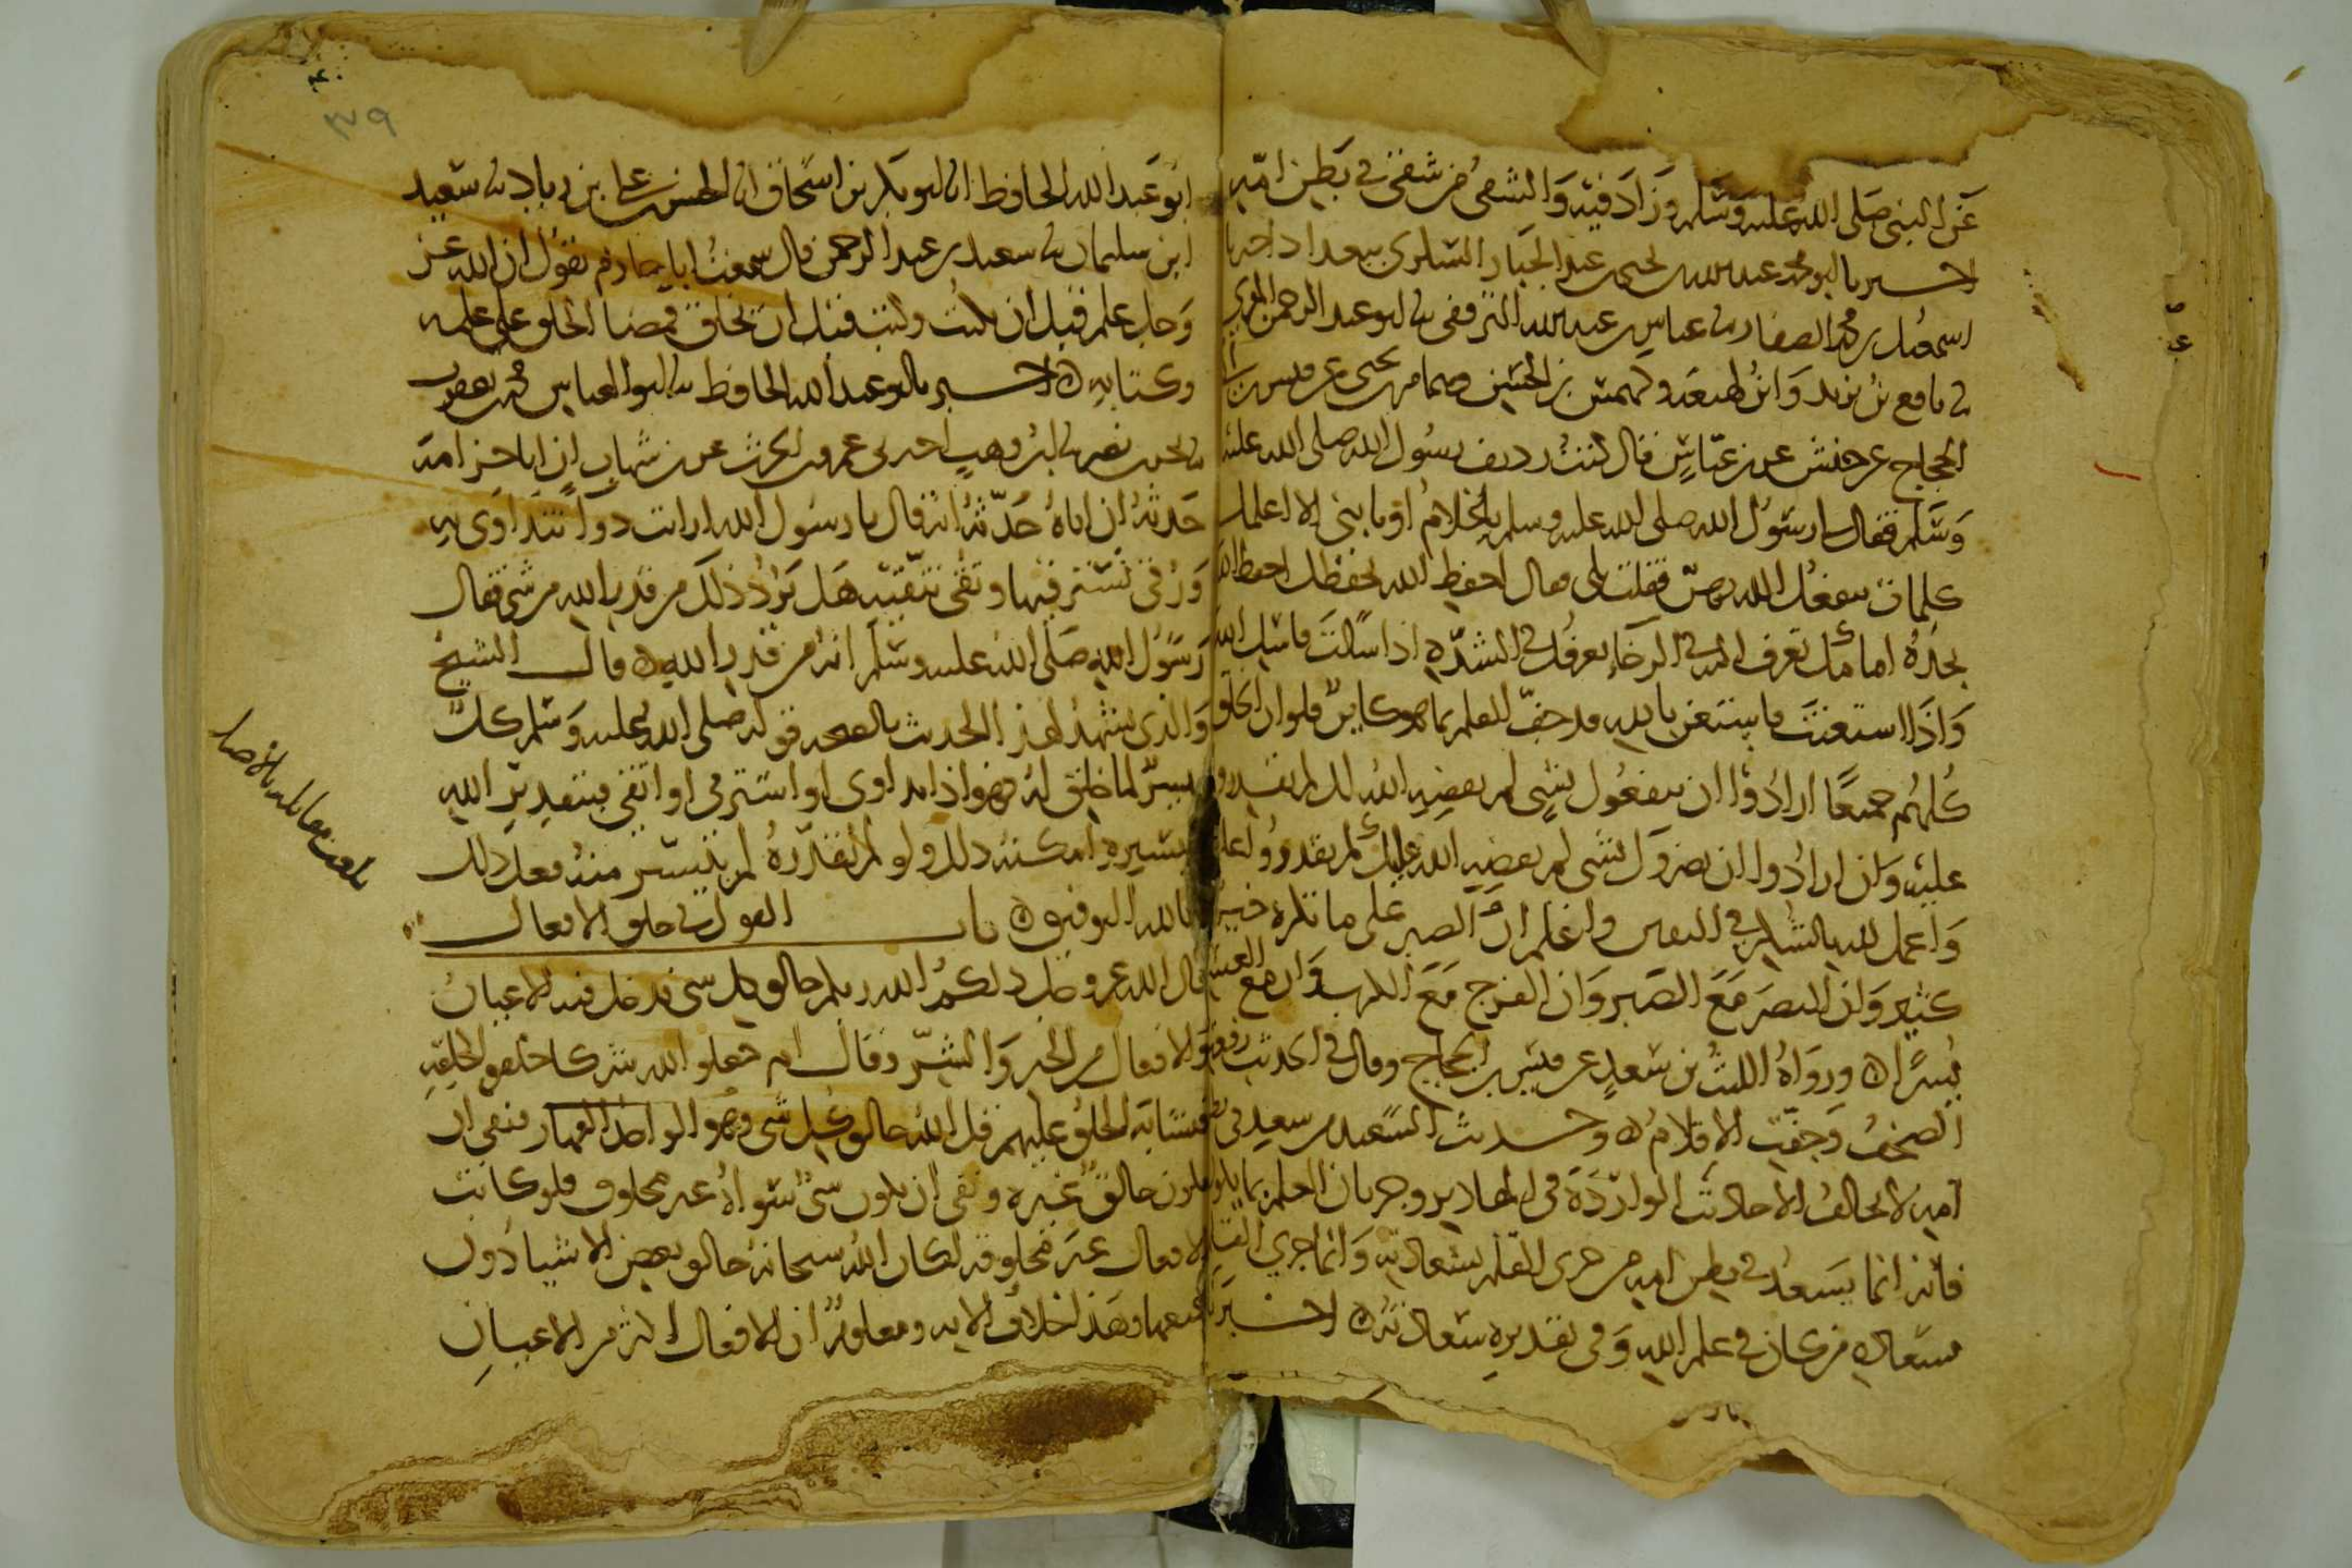 عن النبي صلى الله عليه وسلم وزاد فيه والشقي من شقي في بطن امه
اخبرنا ابو محمد عبد الله بن يحيى بن عبد الجبار السكري ببغداد اخبرنا
اسمعيل بن محمد الصفار نا عباس بن عبد الله الترقفي نا ابو عبد الرحمن المقري
نا نافع بن يزيد وابن لهيعة وكهمس بن الحسن وهمام بن يحيى عن قيس بن
الحجاج عن حنش عن ابن عباس قال كنت رديف رسول الله صلى الله عليه
وسلم فقال لي رسول الله صلى الله عليه وسلم يا غلام او يا بني الا اعلمك
كلمات ينفعك الله بهن فقلت بلى فقال احفظ الله يحفظك احفظ الله
تجده امامك تعرف اليه في الرخاء يعرفك في الشدة اذا سالت فاسل الله
واذا استعنت فاستعن بالله قد جف القلم بما هو كاين فلو ان الخلق
كلهم جميعا ارادوا ان ينفعوك بشي لم يقضه الله لك لم يقدروا
عليه وان ارادوا ان يضروك بشي لم يقضه الله عليك لم يقدروا عليه
واعمل لله بالشكر في اليقين واعلم ان الصبر على ما تكره خير
كثير وان النصر مع الصبر وان الفرج مع الكرب وان مع العسر
يسرا ورواه الليث بن سعد عن قيس بن الحجاج وقال في الحديث رفعت
الصحف وجفت الاقلام وحديث السعيد من سعد في بطن
امه لا يخالف الاحاديث الواردة في المقادير وجريان القلم بما يكون
فانه انما يسعد في بطن امه من جرى القلم بسعادته وانما جرى القلم
بسعادة من كان في علم الله وفي تقديره سعادته اخبرنا
ابو عبد الله الحافظ انا ابو بكر بن اسحاق انا الحسن بن علي بن زياد نا سعيد
ابن سليمان نا سعيد بن عبد الرحمن قال سمعت ابا حازم يقول ان الله عز
وجل علم قبل ان يكتب وكتب قبل ان يخلق فمضا الخلق على علمه
وكتابه اخبرنا ابو عبد الله الحافظ نا ابو العباس محمد بن يعقوب
نا بحر بن نصر نا ابن وهب اخبرني عمرو بن الحرث عن ابن شهاب ان ابا خزامة
حدثه ان اباه حدثه انه قال يا رسول الله ارايت دوا نتداوى به
ورقى نسترقيها وتقى نتقيه هل يرد ذلك من قدر الله من شي فقال
رسول الله صلى الله عليه وسلم انه من قدر الله قال الشيخ
والذي يشهد لهذا الحديث بالصحة قوله صلى الله عليه وسلم كل
ميسر لما خلق له فهو اذا تداوى او استرقى او اتقى فبتقدير الله
وتيسيره امكنه ذلك ولو لم يقدره لم يتيسر منه فعل ذلك
وبالله التوفيق باب القول في خلق الافعال
قال الله عز وجل ذلكم الله ربكم خالق كل شي فدخل فيه الاعيان
والافعال من الخير والشر وقال ام جعلوا لله شركا خلقوا كخلقه
فتشابه الخلق عليهم قل الله خالق كل شي وهو الواحد القهار فنفى ان
يكون خالق غيره ونفى ان يكون شي سواه غير مخلوق فلو كانت
الافعال غير مخلوقة لكان الله سبحانه خالق بعض الاشيا دون
جميعها وهذا خلاف الاية ومعلوم ان الافعال اكثر من الاعيان
بلغت مقابلة بالاصل
٣٩